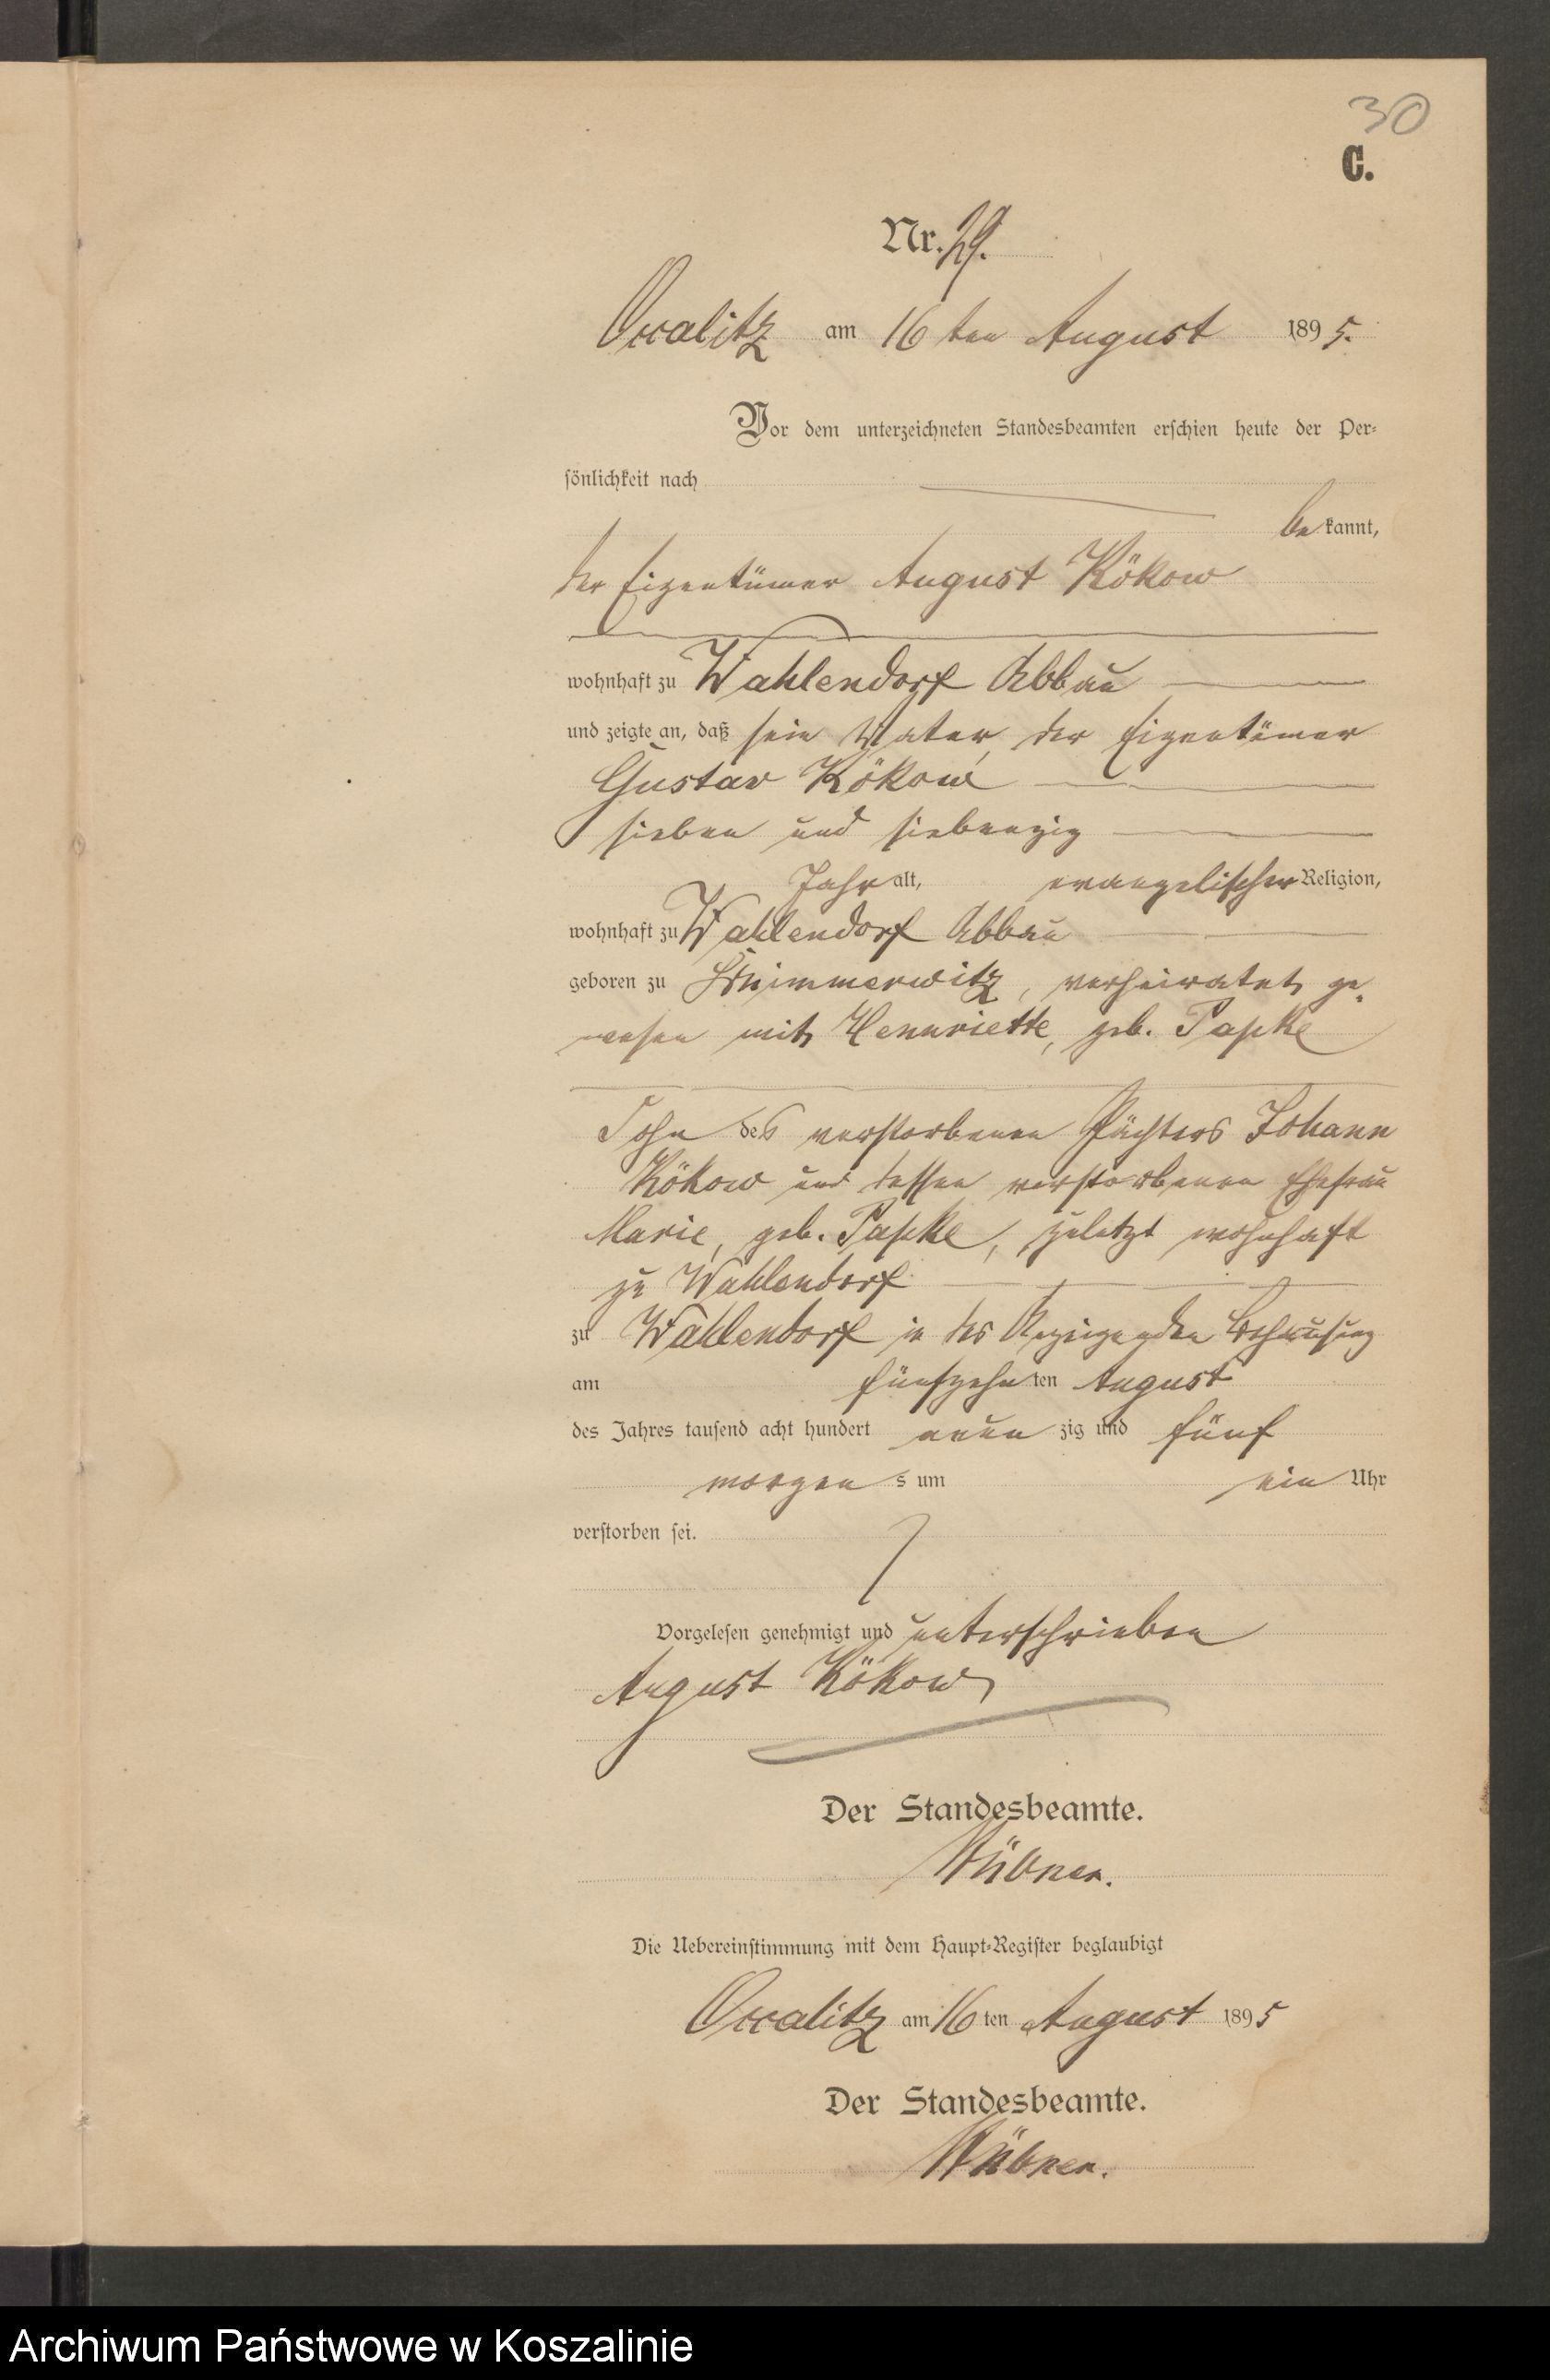 30
C.
Nr. 29.
Occalitz am 16 ten August 1895.
Vor dem unterzeichneten Standesbeamten erschien heute der Per-
sönlichkeit nach
be kannt,
der Eigentümer August Kökow
wohnhaft zu Wahlendorf Abbau
und zeigte an, daß sein Vater, der Eigentümer
Gustav Kökow
sieben und siebenzig
Jahr alt, evangelischer Religion,
wohnhaft zu Wahlendorf Abbau
geboren zu verheiratet ge-
wesen mit Hennriette, geb. Papke
Sohn des verstorbenen Pächters Johann
Kökow und dessen verstorbenen Ehefrau
Marie, geb. Papke, zuletzt wohnhaft
zu Wahlendorf
zu Wahlendorf in des Anzeigenden Behausung
am fünfzehn ten August
des Jahres tausend acht hundert neun zig und fünf
morgen s um ein Uhr
verstorben sei.
Vorgelesen genehmigt und unterschrieben
August Kökow
Der Standesbeamte.
Die Uebereinstimmung mit dem Haupt-Register beglaubigt
Occalitz am 16 ten August 1895
Der Standesbeamte.
Archiwum Państwowe w Koszalinie